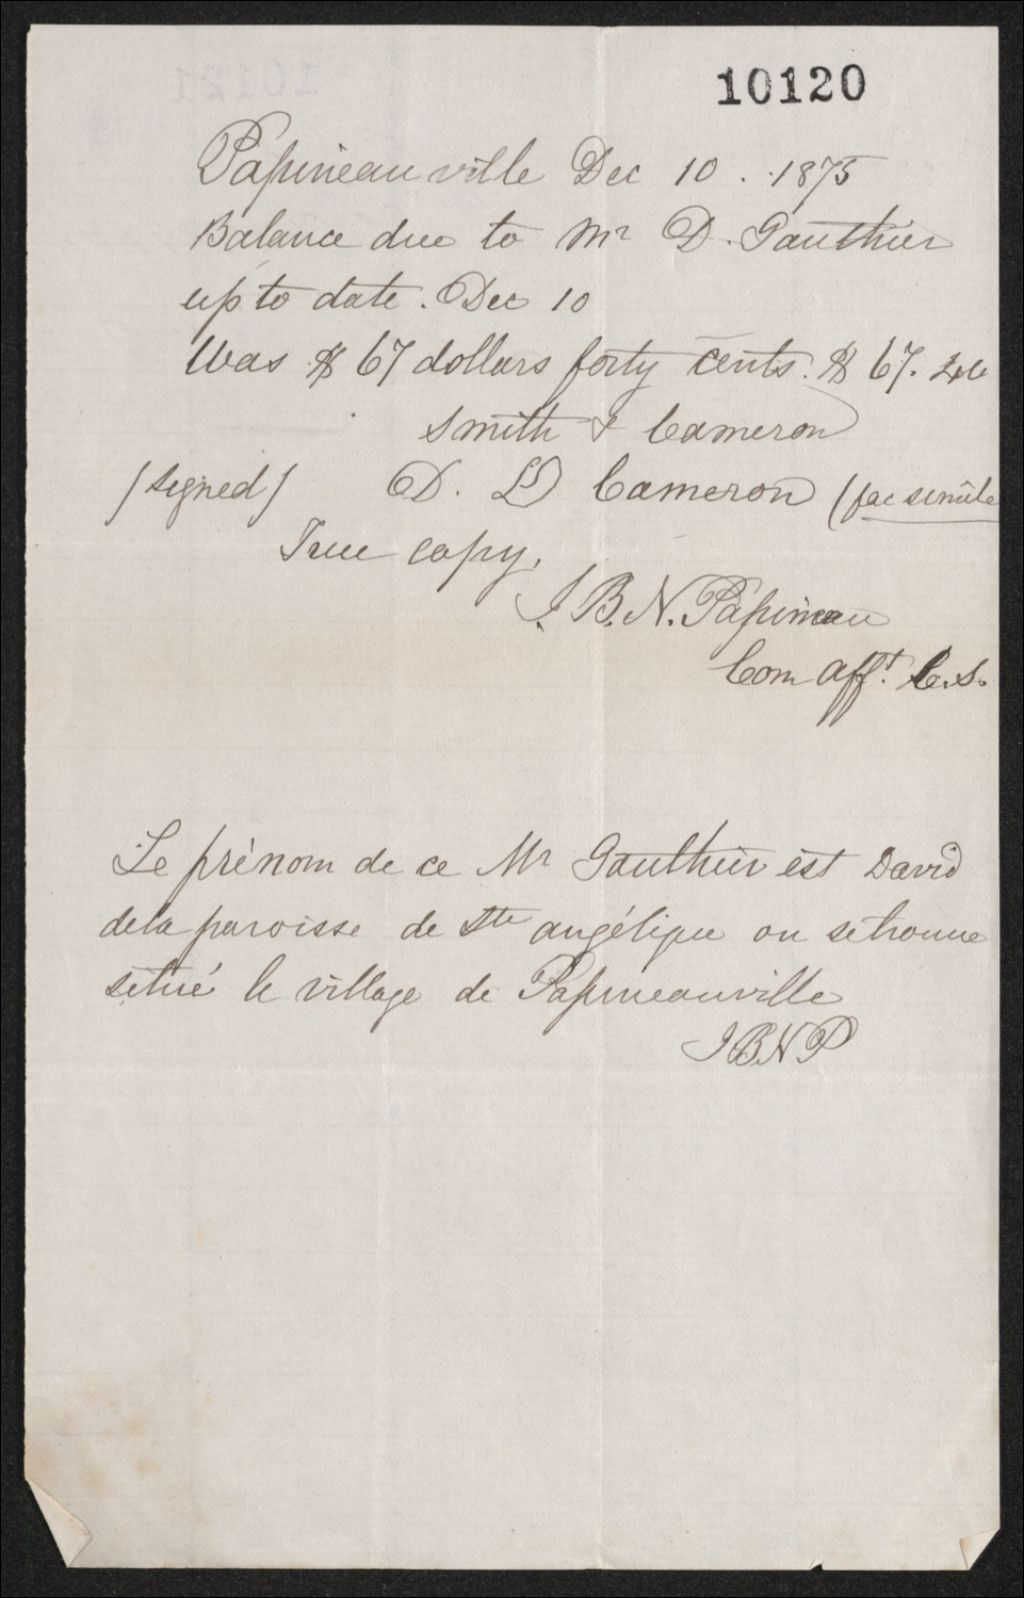 10120
Papineauville Dec 10. 1875
Balance due to Mr D. Gauthier
up to date. Dec 10
Was $ 67 dollars forty cents. $ 67. 40
Smith & Cameron
/signed/ D. D Cameron (fac simile
True copy,
J. B. N. Papineau
Com Afft. C.S.
Le prénom de ce Mr Gauthier est David
de la paroisse de Ste angélique ou se trouve
situé le village de Papineauville
JBNP